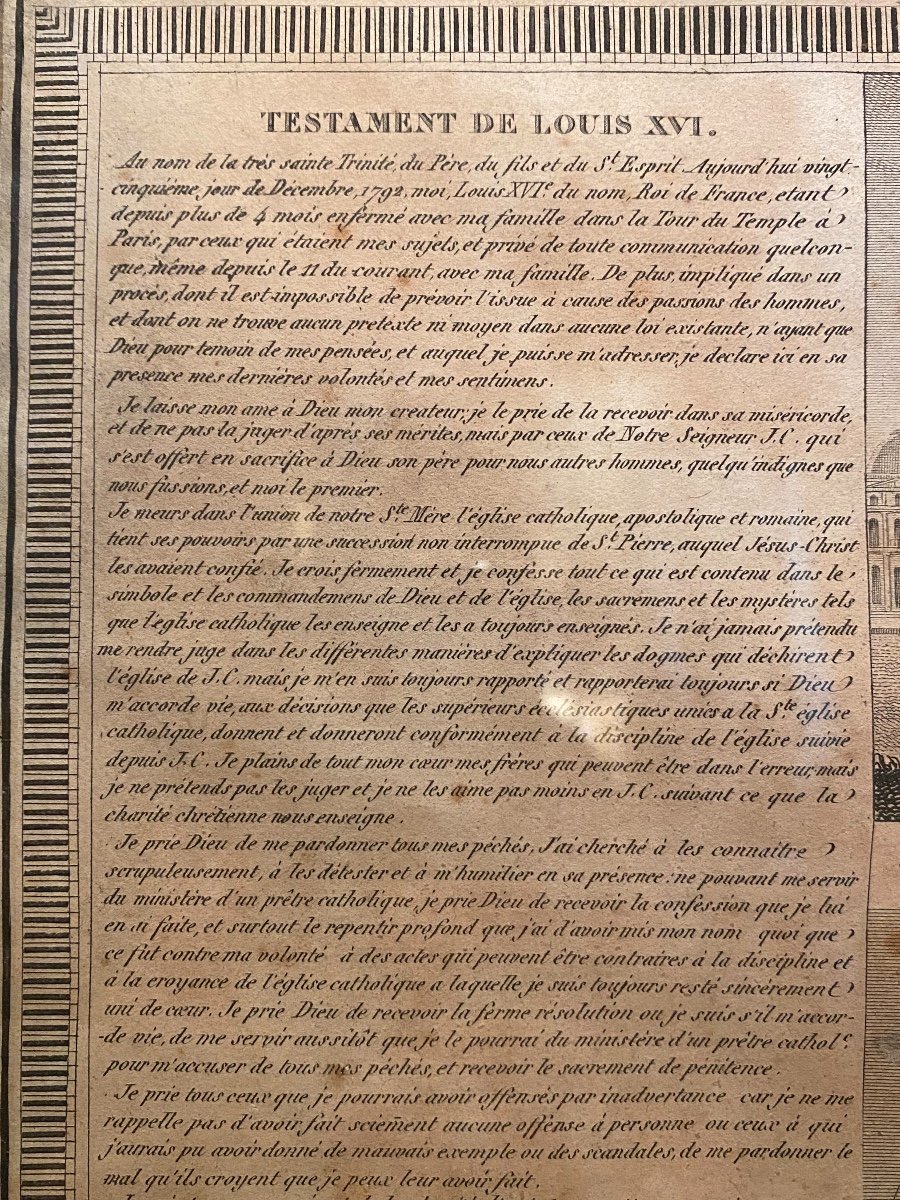 TESTAMENT DE LOUIS XVI.
Au nom de la trés sainte Trinité, du Père, du fils et du St Esprit. Aujourd'hui vingt-
cinquiéme jour de Décembre, 1792, moi, Louis XVIe du nom, Roi de France, etant
depuis plus de 4 mois enfermé avec ma famille dans la Tour du Temple á
Paris, par ceux qui étaient mes sujets, et privé de toute communication quelcon-
que, même depuis le 11 du courant, avec ma famille. De plus, impliqué dans un
procés, dont il est impossible de prévoir l'issue à cause des passions des hommes,
et dont on ne trouve aucun pretexte ni moyen dans aucune loi existante, n'ayant que
Dieu pour temoin de mes pensées, et auquel je puisse m'adresser, je declare ici en sa
presence mes dernières volontés et mes sentimens.
Je laisse mon ame à Dieu mon createur; je le prie de la recevoir dans sa miséricorde,
et de ne pas la juger d'aprés ses mérites, mais par ceux de Notre Seigneur J.C. qui
s'est offert en sacrifice á Dieu son père pour nous autres hommes, quelqu'indignes que
nous fussions, et moi le premier.
Je meurs dans l'union de notre Ste Mère l'église catholique, apostolique et romaine, qui
tient ses pouvoirs par une succession non interrompue de St Pierre, auquel Jésus-Christ
les avaient confié. Je crois fermement et je confesse tout ce qui est contenu dans le
simbole et les commandemens de Dieu et de l'église, les sacremens et les mystères tels
que l'église catholique les enseigne et les a toujours enseignés. Je n'ai jamais prétendu
me rendre juge dans les différentes manières d'expliquer les dogmes qui déchirent
l'église de J.C. mais je m'en suis toujours rapporté et rapporterai toujours si Dieu
m'accorde vie, aux décisions que les supérieurs écclésiastiques unies a la Ste église
catholique, donnent et donneront conformément à la discipline de l'église suivie
depuis J.C. Je plains de tout mon cœur mes frères qui peuvent être dans l'erreur, mais
je ne prétends pas les juger et je ne les aime pas moins en J.C. suivant ce que la
charité chrétienne nous enseigne.
Je prie Dieu de me pardonner tous mes péchés, J'ai cherché à les connaître
scrupuleusement, à les détester et à m'humilier en sa présence: ne pouvant me servir
du ministère d'un prêtre catholique, je prie Dieu de recevoir la confession que je lui
en ai faite, et surtout le repentir profond que j'ai d'avoir mis mon nom quoi que
ce fut contre ma volonté à des actes qui peuvent être contraires à la discipline et
à la croyance de l'église catholique a laquelle je suis toujours resté sincèrement
uni de cœur. Je prie Dieu de recevoir la ferme résolution ou je suis s'il m'accor-
-de vie, de me servir aussitôt que je le pourrai du ministère d'un prêtre cathole.
pour m'accuser de tous mes péchés, et recevoir le sacrement de pénitence.
Je prie tous ceux que je pourrais avoir offensés par inadvertance car je ne me
rappelle pas d'avoir fait sciem̄ent aucune offense á personne ou ceux à qui
j'aurais pu avoir donné de mauvais exemple ou des scandales, de me pardonner le
mal qu'ils croyent que je peux leur avoir fait.